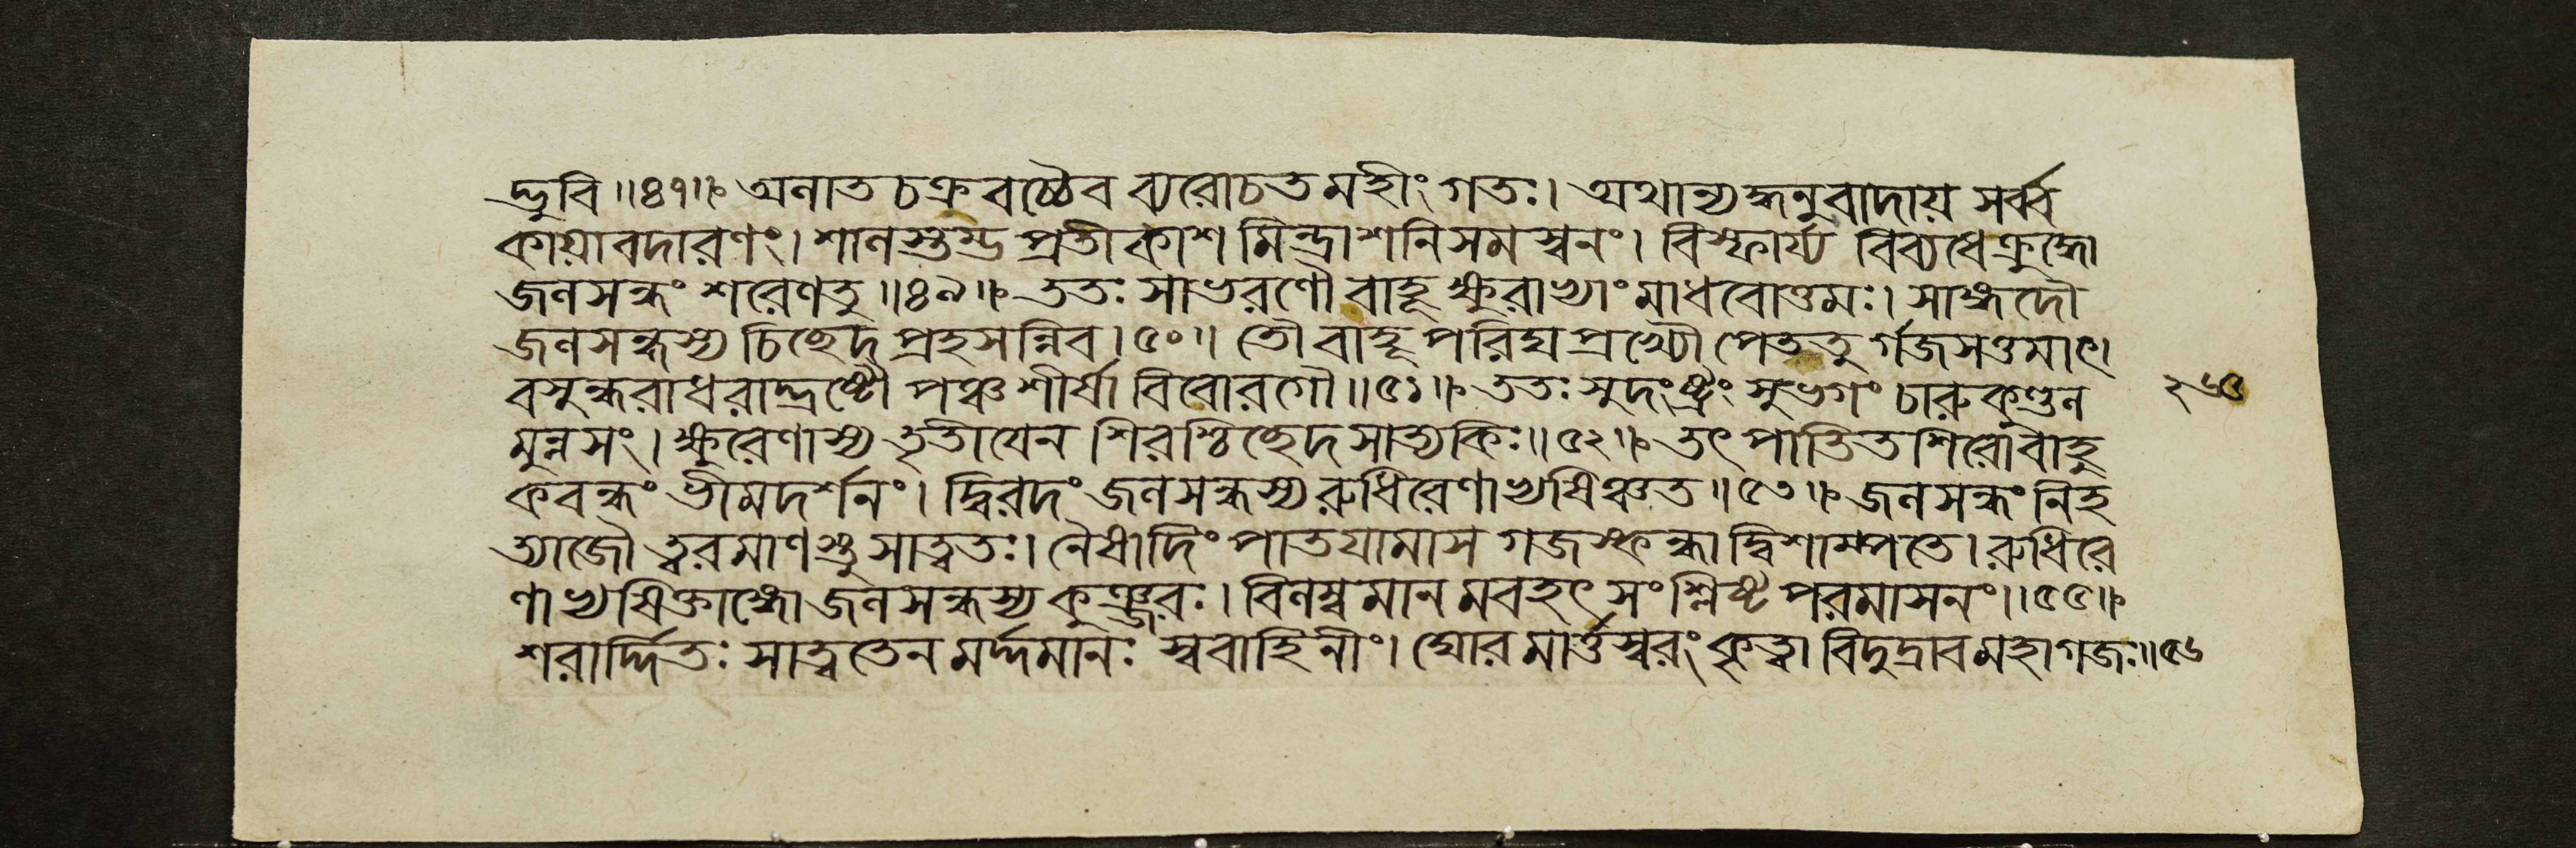 দ্ভুবি॥৪৭॥ অলাতচক্রবচ্চৈব ব্যরোচত মহীং গতঃ। অথান্যদ্ধনুরাদায় সর্ব্ব
কায়াবদারণং। শালস্কন্ধপ্রতীকাশমিন্দ্রাশনিসমস্বনং। বিস্ফার্য্য বিব্যধে ক্রুদ্ধো
জলসন্ধং শরেণ তু॥৪৯॥ ততঃ সাভরণৌ বাহূ ক্ষুরাভ্যাং মাধবোত্তমঃ। সাঙ্গদৌ
জলসন্ধস্য চিচ্ছেদ প্রহসন্নিব।৫০॥ তৌ বাহূ পরিঘপ্রখ্যৌ পেততুর্গজসত্তমাৎ।
বসুন্ধরাধরাদ্ভ্রষ্টৌ পঞ্চশীর্ষাবিবোরগৌ॥৫১॥ ততঃ সুদংষ্ট্রং সুভগং চারুকুণ্ডল
মুন্নসং। ক্ষুরেণাস্য তৃতীয়েন শিরশ্চিচ্ছেদ সাত্যকিঃ॥৫২॥ তৎ পাতিতশিরোবাহু
কবন্ধং ভীমদর্শনং। দ্বিরদং জলসন্ধস্য রুধিরেণাভ্যষিঞ্চত॥৫৩॥ জলসন্ধং নিহ
ত্যাজৌ ত্বরমাণস্তু সাত্বতঃ। নৈষাদিং পাতয়ামাস গজস্কন্ধাদ্বিশাম্পতে। রুধিরে
ণাভ্যষিক্তাঙ্গো জলসন্ধস্য কুঞ্জরঃ। বিলম্বমানমবহৎ সংশ্লিষ্টং পরমাসনং।।৫৫॥
শরার্দ্দিতঃ সাত্বতেন মর্দ্দমানঃ স্ববাহিনীং। ঘোরমার্ত্তস্বরং কৃত্বা বিদুদ্রাব মহাগজঃ॥৫৬